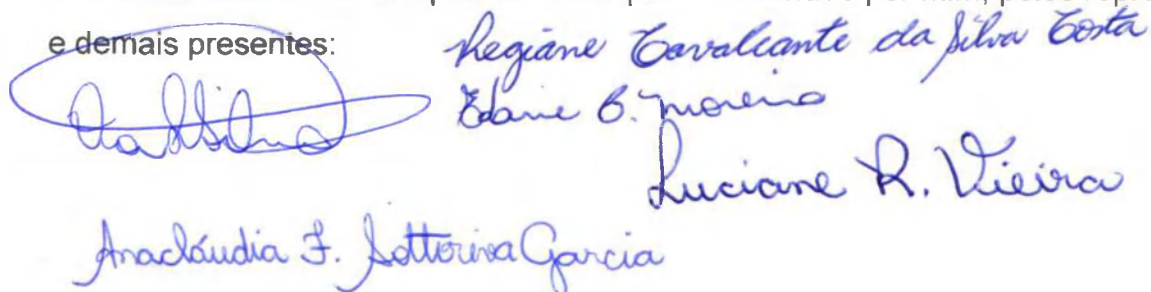 e demais presentes:
Regiane Cavalcante da Silva Costa
B. Moreira
Luciane R. Vieira
Anacláudia F. Sottoriva Garcia